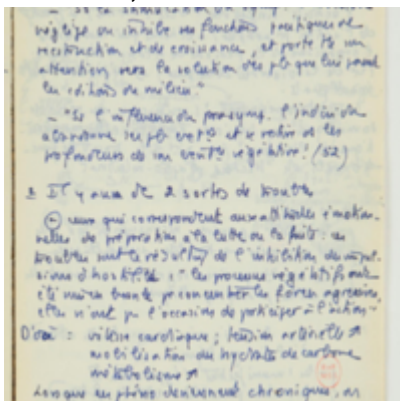 — So la stimulation du symp.
néglige ou inhibe ses fonctions pacifiques de
reconstruction et de croissance, et porte ts son
attention vers la solution des pb que lui posent
les conditions du milieu."
— "Ss l'influence du parasymp. l'individu
abandonne ses pb ext et se retire ds les
profondeurs de son existence végétative." (52)
2 Il y aura dc 2 sortes de troubles
ceux qui correspondent aux attitudes émotion-
nelles de préparation à la lutte ou la fuite : ces
troubles sont le résultat de l'inhibition des impul-
sions d'hostilité : "les processus végétatifs ont
été mis en branle pr concentrer les forces agressives,
elles n'ont pas l'occasion de participer à l'action"
D'où : vitesse cardiaque ; tension artérielle ↗
mobilisation des hydrates de carbone
métabolisme ↗
Lorsque ces phéno deviennent chroniques, on